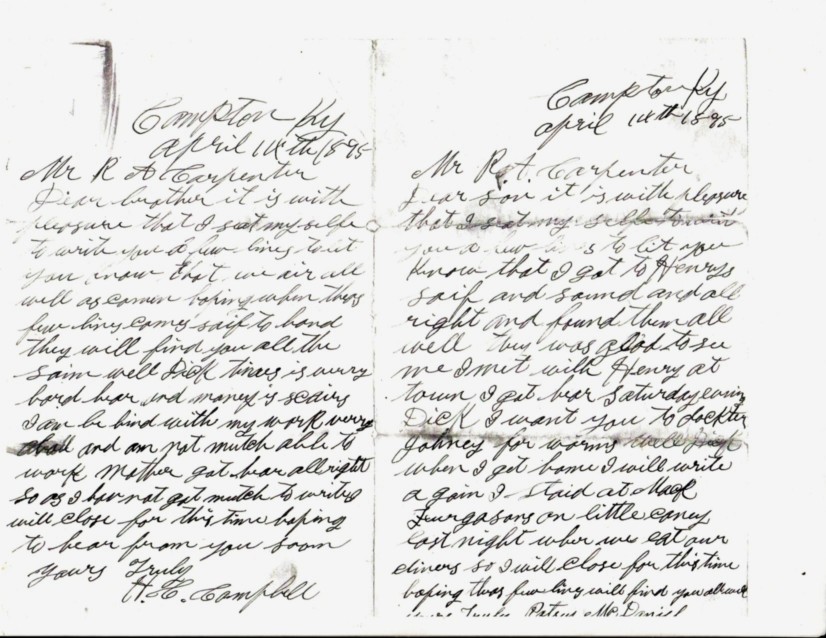 Campton Ky
April 14th 1895
Mr R A Carpenter
Dear brother it is with
pleasure that I seat my selfe
to write you a few lines to let
you know that we air all
well as comon hoping when thas
few lines comes saif to hand
they will find you all the
saim well Dick times is very
hard hear and money is scairs
I am be hind with my work very
and am not mutch able to
work Mother got hear all right
so as I hav not got mutch to write I
will close for this time hoping
to hear from you soon
yours Truly
H. C. Campbell
Campton Ky
april 14th 1895
Mr R. A. Carpenter
Dear son it is with pleasure
that I seat my selfe to write
you a few to let you
know that I got to Henrys
saif and sound and all
right and found them all
well they was glad to see
me I met with Henry at
town I got hear Saturday
Dick I want you to Docktor
Johney for worms well Dick
when I get home I will write
a gain I staid at Mack
Furgasons on little caney
last night wher we eat our
diners so I will close for this time
hoping thas few lines will find you all well
yours Truly McDaniel